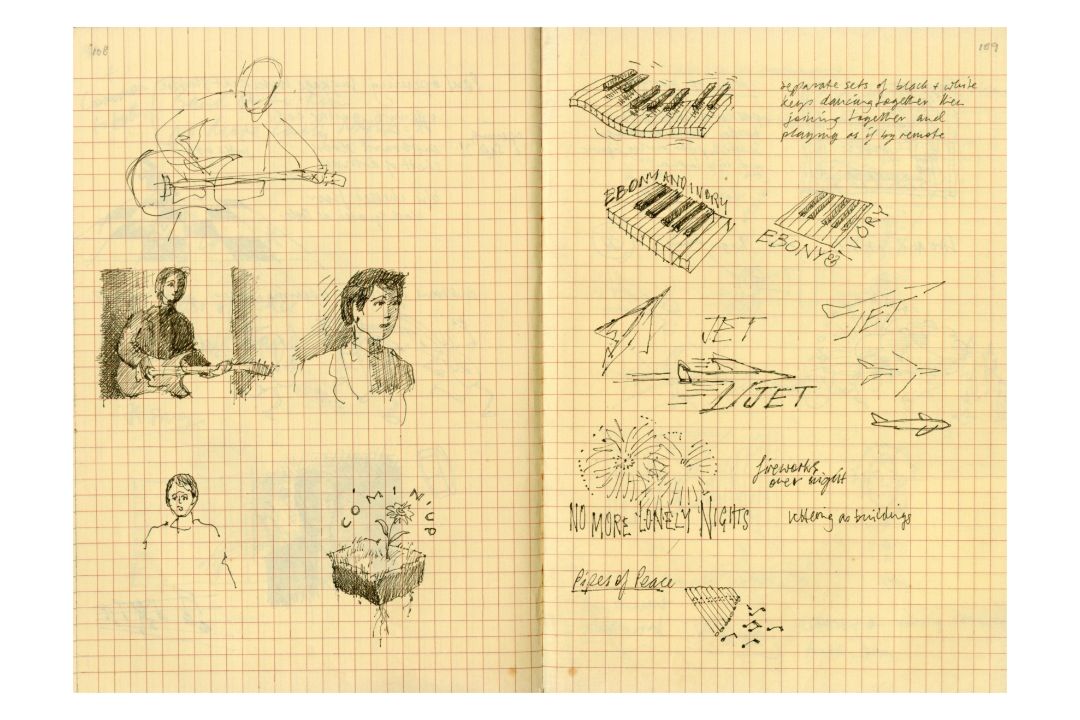 108
COMING UP
109
separate sets of black + white
keys dancing together then
joining together and
playing as if by remote
EBONY AND IVORY
EBONY & IVORY
JET
JET
JET
fireworks
over night
NO MORE LONELY NIGHTS
lettering as buildings
Pipes of Peace